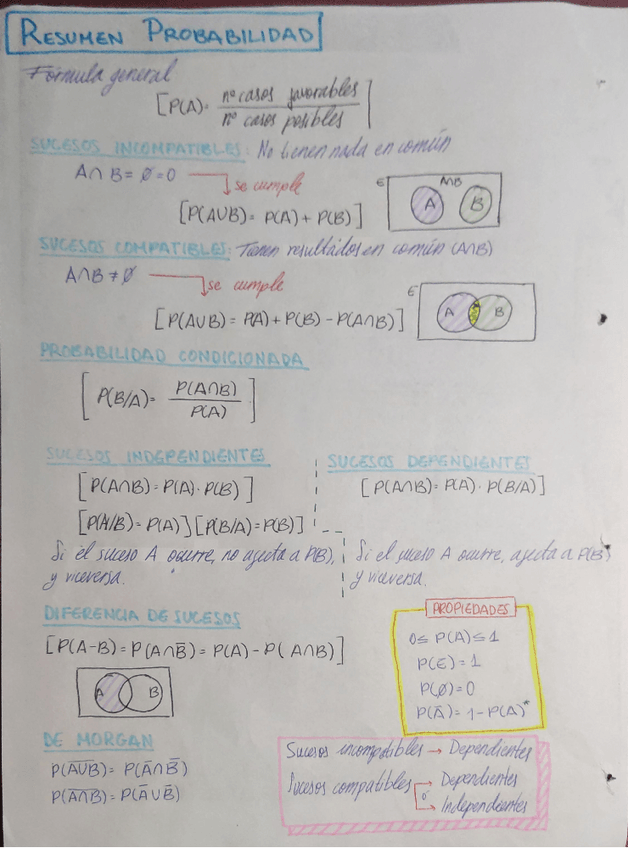 RESUMEN PROBABILIDAD
Fórmula general
[P(A)= nº casos favorables / nº casos posibles]
SUCESOS INCOMPATIBLES: No tienen nada en común
A∩B=Ø=0 → se cumple
[P(A∪B)=P(A)+P(B)]
E A∩B A B
SUCESOS COMPATIBLES: Tienen resultados en común (A∩B)
A∩B≠Ø → se cumple
[P(A∪B)=P(A)+P(B)-P(A∩B)]
E A B
PROBABILIDAD CONDICIONADA
[P(B/A)= P(A∩B) / P(A)]
SUCESOS INDEPENDIENTES
[P(A∩B)=P(A)·P(B)]
[P(A/B)=P(A)] [P(B/A)=P(B)]
Si el suceso A ocurre, no afecta a P(B),
y viceversa.
SUCESOS DEPENDIENTES
[P(A∩B)=P(A)·P(B/A)]
Si el suceso A ocurre, afecta a P(B)
y viceversa.
DIFERENCIA DE SUCESOS
[P(A-B)=P(A∩B̅)=P(A)-P(A∩B)]
A B
PROPIEDADES
0≤P(A)≤1
P(E)=1
P(Ø)=0
P(A̅)=1-P(A)*
DE MORGAN
P(A̅∪̅B̅)=P(A̅∩B̅)
P(A̅∩̅B̅)=P(A̅∪B̅)
Sucesos incompatibles → Dependientes
Sucesos compatibles → Dependientes
ó
→ Independientes